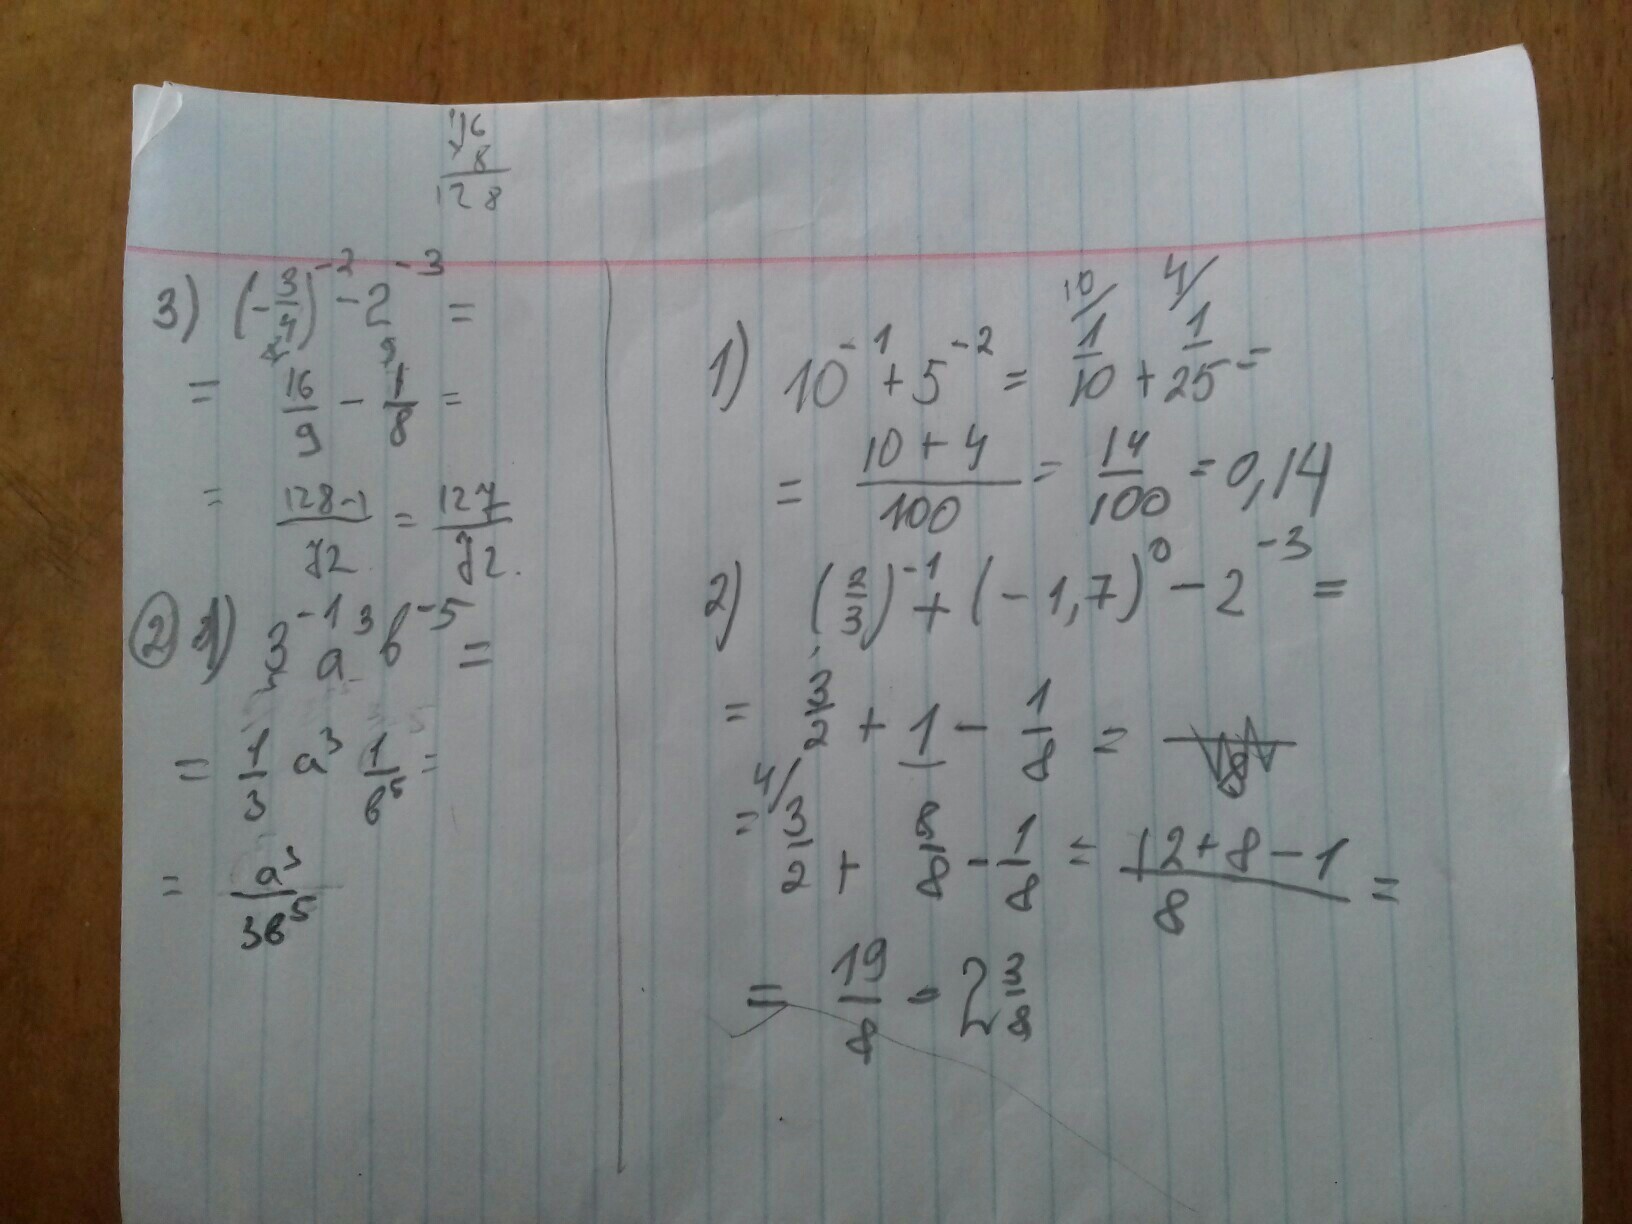 16
× 8
128
3) (-3/4)^-2 - 2^-3 =
= 16/9 - 1/8 =
= 128-1/72 = 127/72.
② 1) 3^-1 a^3 b^-5 =
= 1/3 a^3 1/b^5 =
= a^3/3b^5
1) 10^-1 + 5^-2 = 10/ 1/10 + 4/ 1/25 =
= 10+4/100 = 14/100 = 0,14
2) (2/3)^-1 + (-1,7)^0 - 2^-3 =
= 3/2 + 1 - 1/8 =
= 4/ 3/2 + 8/8 - 1/8 = 12+8-1/8 =
= 19/8 = 2 3/8